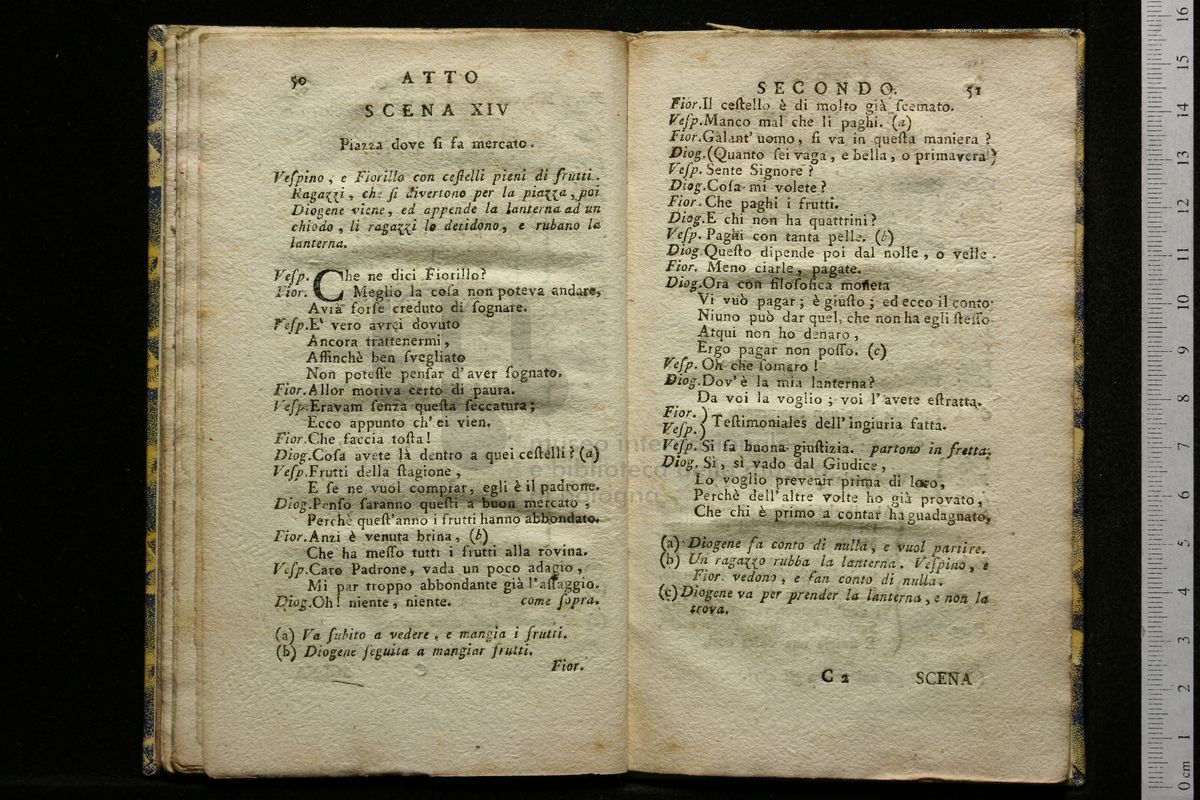 50
ATTO
SCENA XIV
Piazza dove ſi fa mercato.
Veſpino, e Fiorillo con ceſtelli pieni di frutti.
Ragazzi, che ſi divertono per la piazza, poi
Diogene viene, ed appende la lanterna ad un
chiodo, li ragazzi lo deridono, e rubano la
lanterna.
Veſp. Che ne dici Fiorillo?
Fior. Meglio la coſa non poteva andare,
Avrà forſe creduto di ſognare.
Veſp. E' vero avrei dovuto
Ancora trattenermi,
Affinchè ben ſvegliato
Non poteſſe penſar d'aver ſognato.
Fior. Allor moriva certo di paura.
Veſp. Eravam ſenza queſta ſeccatura;
Ecco appunto ch'ei vien.
Fior. Che faccia toſta!
Diog. Coſa avete là dentro a quei ceſtelli? (a)
Veſp. Frutti della ſtagione,
E ſe ne vuol comprar, egli è il padrone.
Diog. Penſo ſaranno queſti a buon mercato,
Perchè queſt'anno i frutti hanno abbondato.
Fior. Anzi è venuta brina, (b)
Che ha meſſo tutti i frutti alla rovina.
Veſp. Caro Padrone, vada un poco adagio,
Mi par troppo abbondante già l'aſſaggio.
Diog. Oh! niente, niente. come ſopra.
(a) Va ſubito a vedere, e mangia i frutti.
(b) Diogene ſeguita a mangiar frutti.
Fior.
SECONDO.
51
Fior. Il ceſtello è di molto già ſcemato.
Veſp. Manco mal che li paghi. (a)
Fior. Galant'uomo, ſi va in queſta maniera?
Diog. (Quanto ſei vaga, e bella, o primavera!)
Veſp. Sente Signore?
Diog. Coſa mi volete?
Fior. Che paghi i frutti.
Diog. E chi non ha quattrini?
Veſp. Paghi con tanta pelle. (b)
Diog. Queſto dipende poi dal nolle, o velle.
Fior. Meno ciarle, pagate.
Diog. Ora con filoſofica moneta
Vi vuò pagar; è giuſto; ed ecco il conto.
Niuno può dar quel, che non ha egli ſteſſo
Atqui non ho denaro,
Ergo pagar non poſſo. (c)
Veſp. Oh che ſomaro!
Diog. Dov'è la mia lanterna?
Da voi la voglio; voi l'avete eſtratta.
Fior. )
Veſp. ) Teſtimoniales dell'ingiuria fatta.
Veſp. Si fa buona giuſtizia. partono in fretta.
Diog. Sì, sì vado dal Giudice,
Lo voglio prevenir prima di loro,
Perchè dell'altre volte ho già provato,
Che chi è primo a contar ha guadagnato,
(a) Diogene fa conto di nulla, e vuol partire.
(b) Un ragazzo rubba la lanterna. Veſpino, e
Fior. vedono, e fan conto di nulla.
(c) Diogene va per prender la lanterna, e non la
trova.
C 2
SCENA
museo internazionale
e biblioteca della musica
bologna
0 cm 1 2 3 4 5 6 7 8 9 10 11 12 13 14 15 16